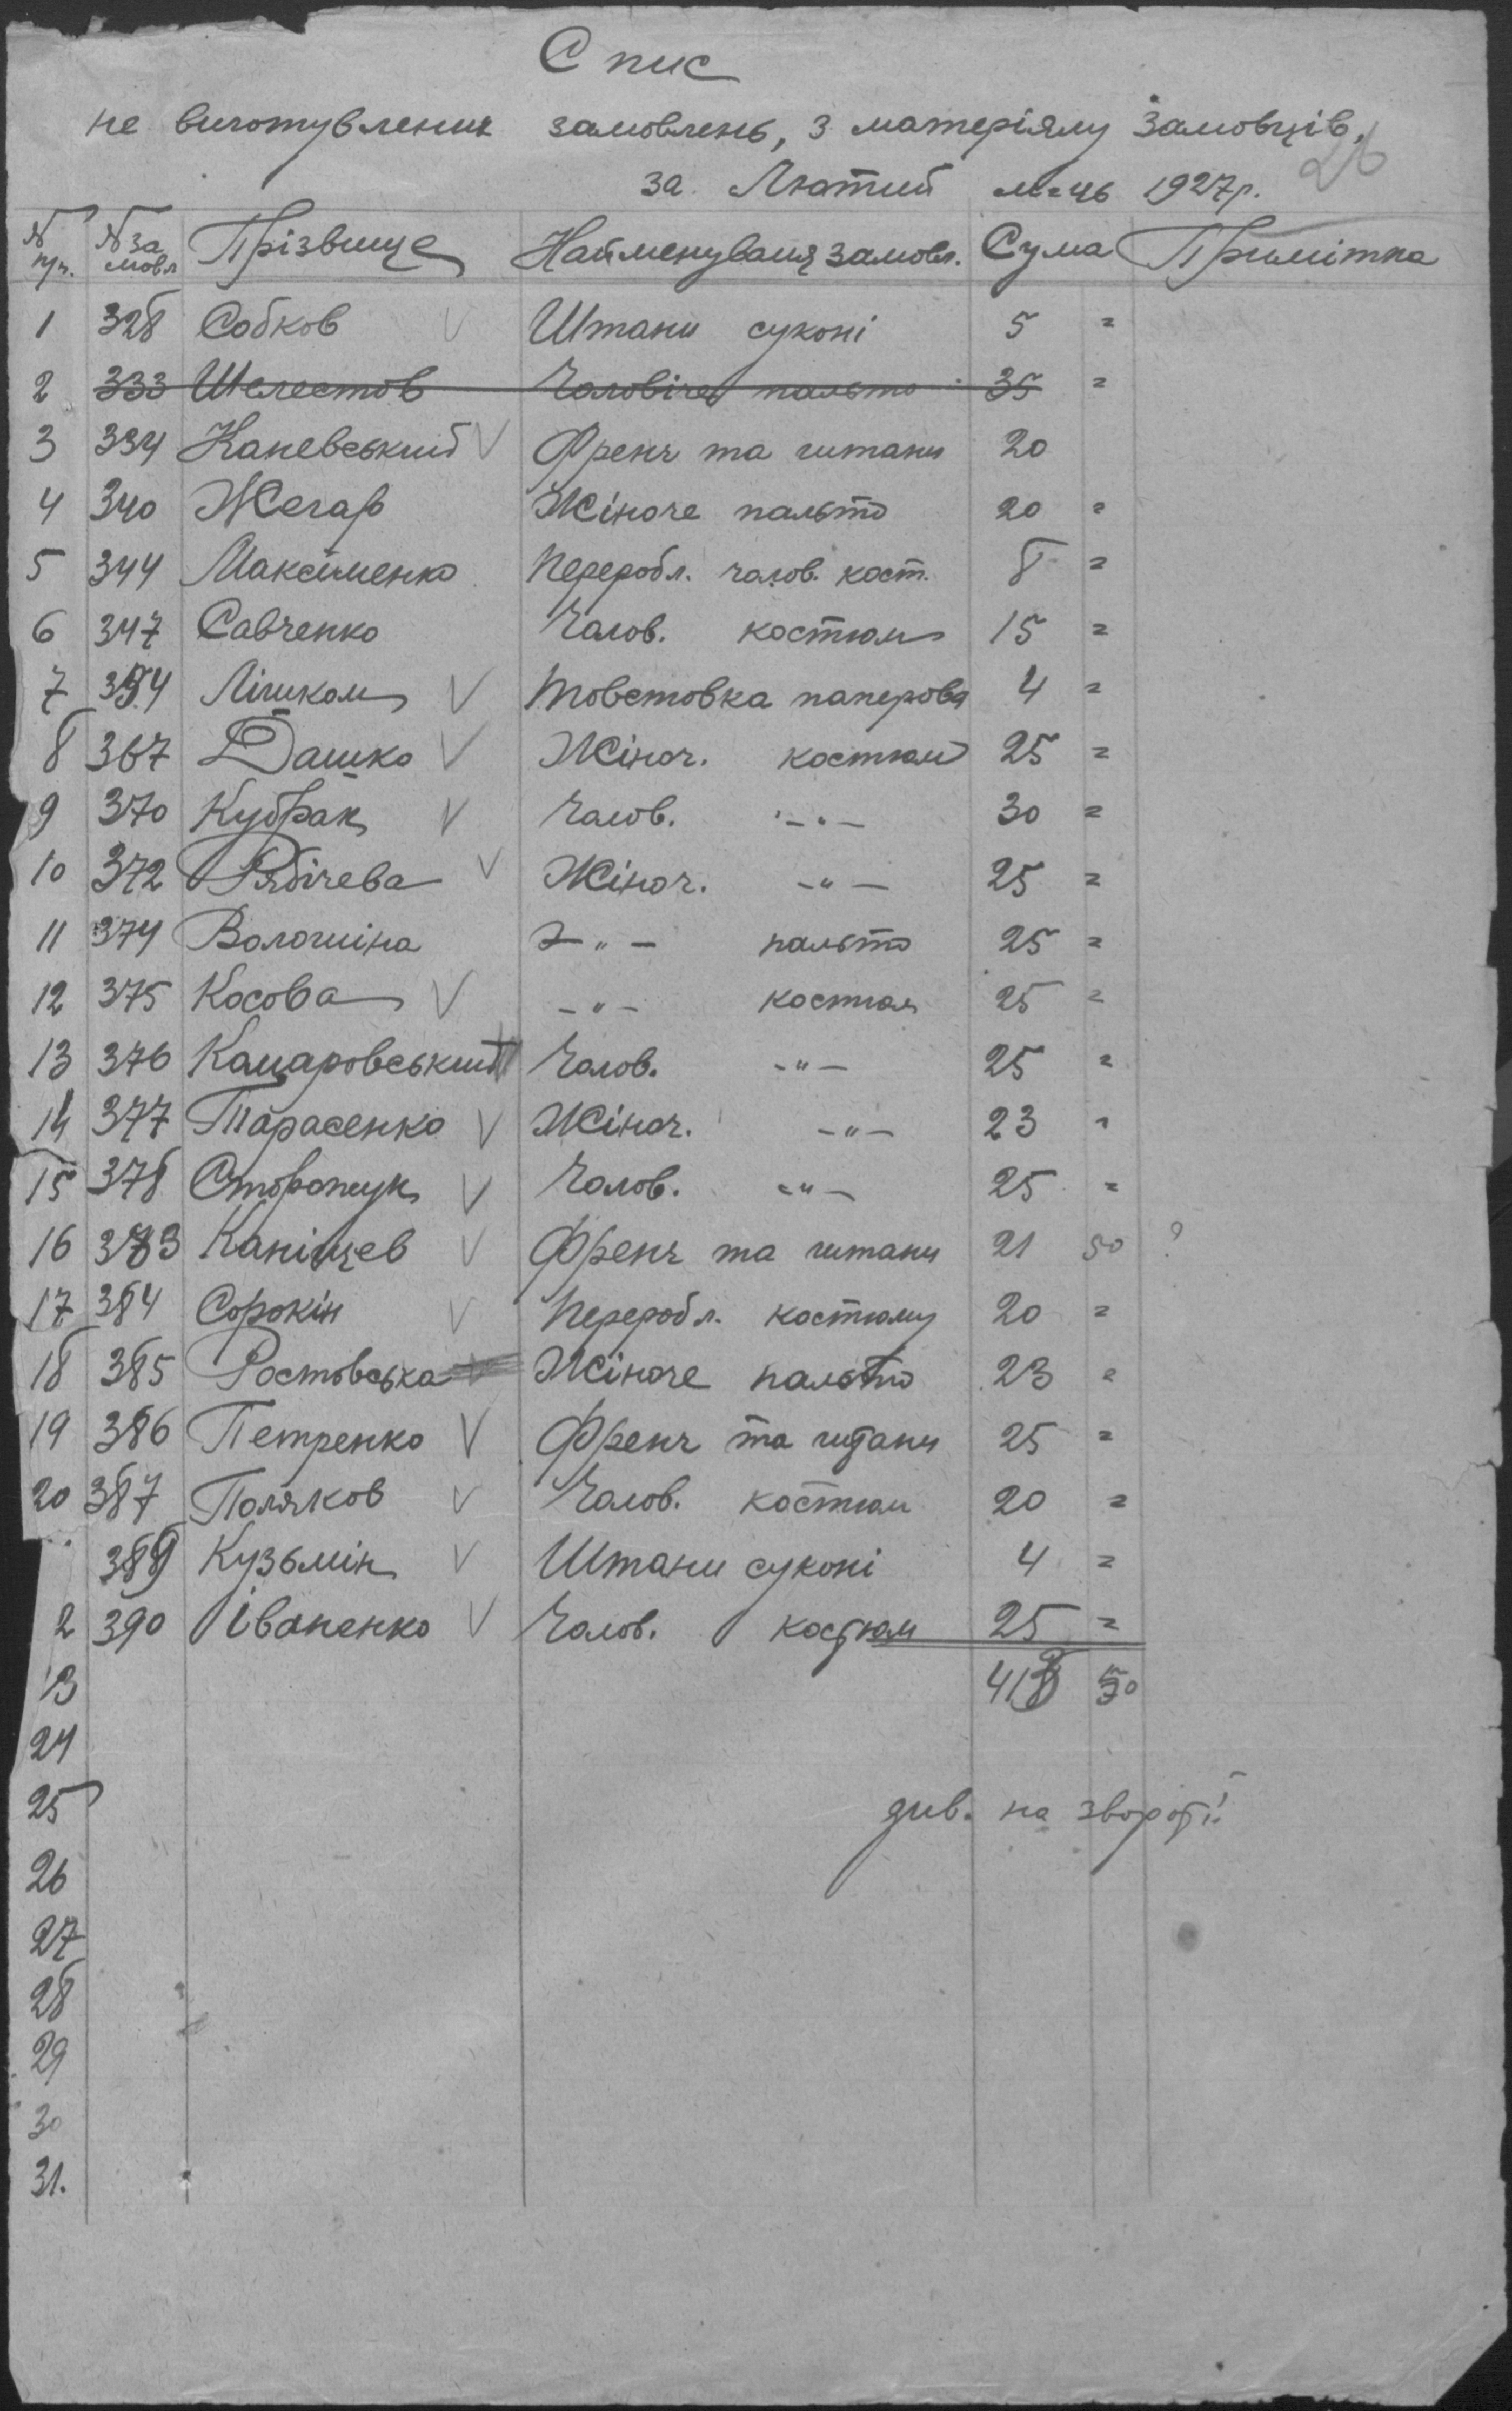 Спис
не виготувлених замовлень, з матеріялу замовців,
за Лютий м-ць 1927р.
26
№ п/п. № замовл Прізвище Найменуваня замовл. Сума Примітка
1 328 Собков V Штани суконі 5 =
2 333 Шелестов Чоловіче пальто 35 =
3 334 Каневський V Френч та штани 20
4 340 Жегар Жіноче пальто 20 =
5 344 Максименко Переробл. чолов. кост. 8 =
6 347 Савченко Чолов. костюм 15 =
7 354 Лішком V Товстовка паперова 4 =
8 367 Дашко V Жіноч. костюм 25 =
9 370 Кубрак V Чолов. -"- 30 =
10 372 Рябічева V Жіноч. -"- 25 =
11 374 Волошіна -"- пальто 25 =
12 375 Косова V -"- костюм 25 =
13 376 Комаровський Чолов. -"- 25 =
14 377 Тарасенко V Жіноч. -"- 23 "
15 378 Сторожук V Чолов. -"- 25 =
16 383 Канівцев V Френч та штани 21 50 ?
17 384 Сорокін V Переробл. костюму 20 =
18 385 Ростовська Жіноче пальто 23 =
19 386 Петренко V Френч та штани 25 =
20 387 Поляков V Чолов. костюм 20 =
389 Кузьмін V Штани суконі 4 =
2 390 Іваненко V Чолов. костюм 25 =
13 418 50
24
25 див. на звороті!
26
27
28
29
30
31.